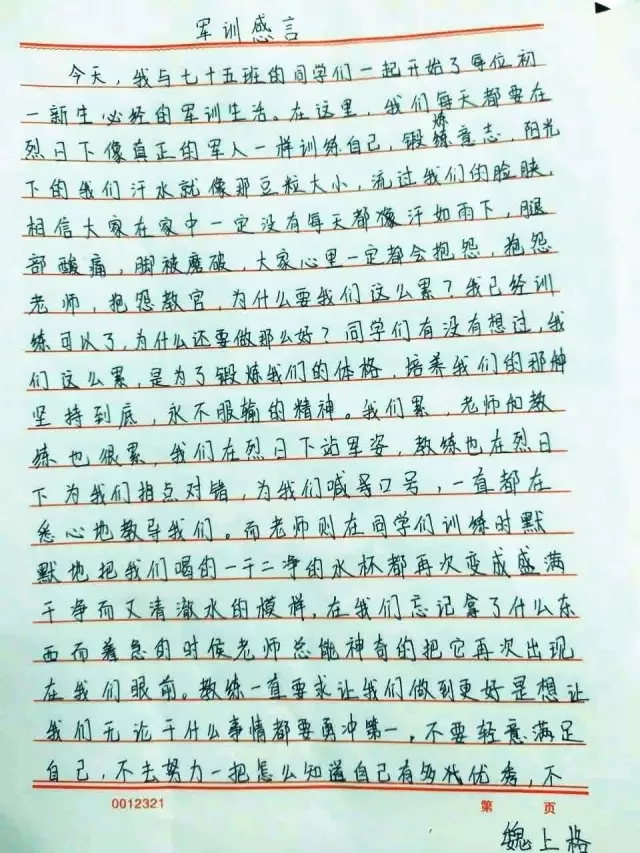 军训感言
今天，我与七十五班的同学们一起开始了每位初
一新生必经的军训生活。在这里，我们每天都要在
烈日下像真正的军人一样训练自己，锻炼意志，阳光
下的我们汗水就像那豆粒大小，流过我们的脸颊，
相信大家在家中一定没有每天都像汗如雨下，腿
部酸痛，脚被磨破，大家心里一定都会抱怨，抱怨
老师，抱怨教官，为什么要我们这么累？我已经训
练可以了，为什么还要做那么好？同学们有没有想过，我
们这么累，是为了锻炼我们的体格，培养我们的那种
坚持到底，永不服输的精神。我们累，老师和教
练也很累，我们在烈日下站军姿，教练也在烈日
下为我们指点对错，为我们喊等口号，一直都在
悉心地教导我们。而老师则在同学们训练时默
默地把我们喝的一干二净的水杯都再次变成盛满
干净而又清澈水的模样，在我们忘记拿了什么东
西而着急的时候老师总能神奇的把它再次出现
在我们眼前。教练一直要求让我们做到更好是想让
我们无论干什么事情都要勇冲第一，不要轻意满足
自己，不去努力一把怎么知道自己有多优秀，不
0012321
第 页
魏上格